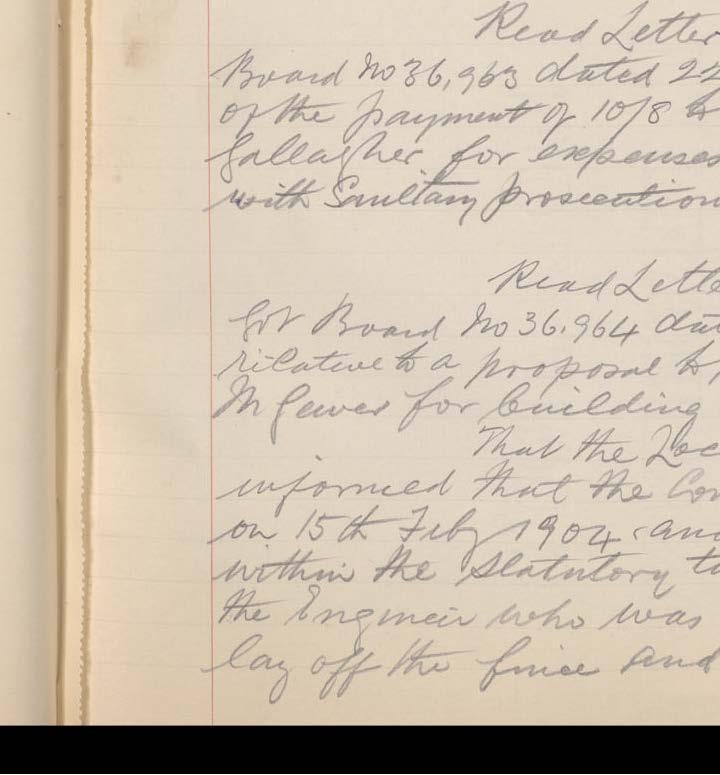 Read Letter
Board No 36,963 dated 22
of the payment of 10/8 to
Gallagher for expenses
with Sanitary prosecution
Read Lette
Gov Board No 36.964 dat
relative to a proposal by
McGever for building
That the Loc
informed that the Con
on 15th Feby 1904 and
within the Statutory ti
the Engineer who was
lay off the fence and